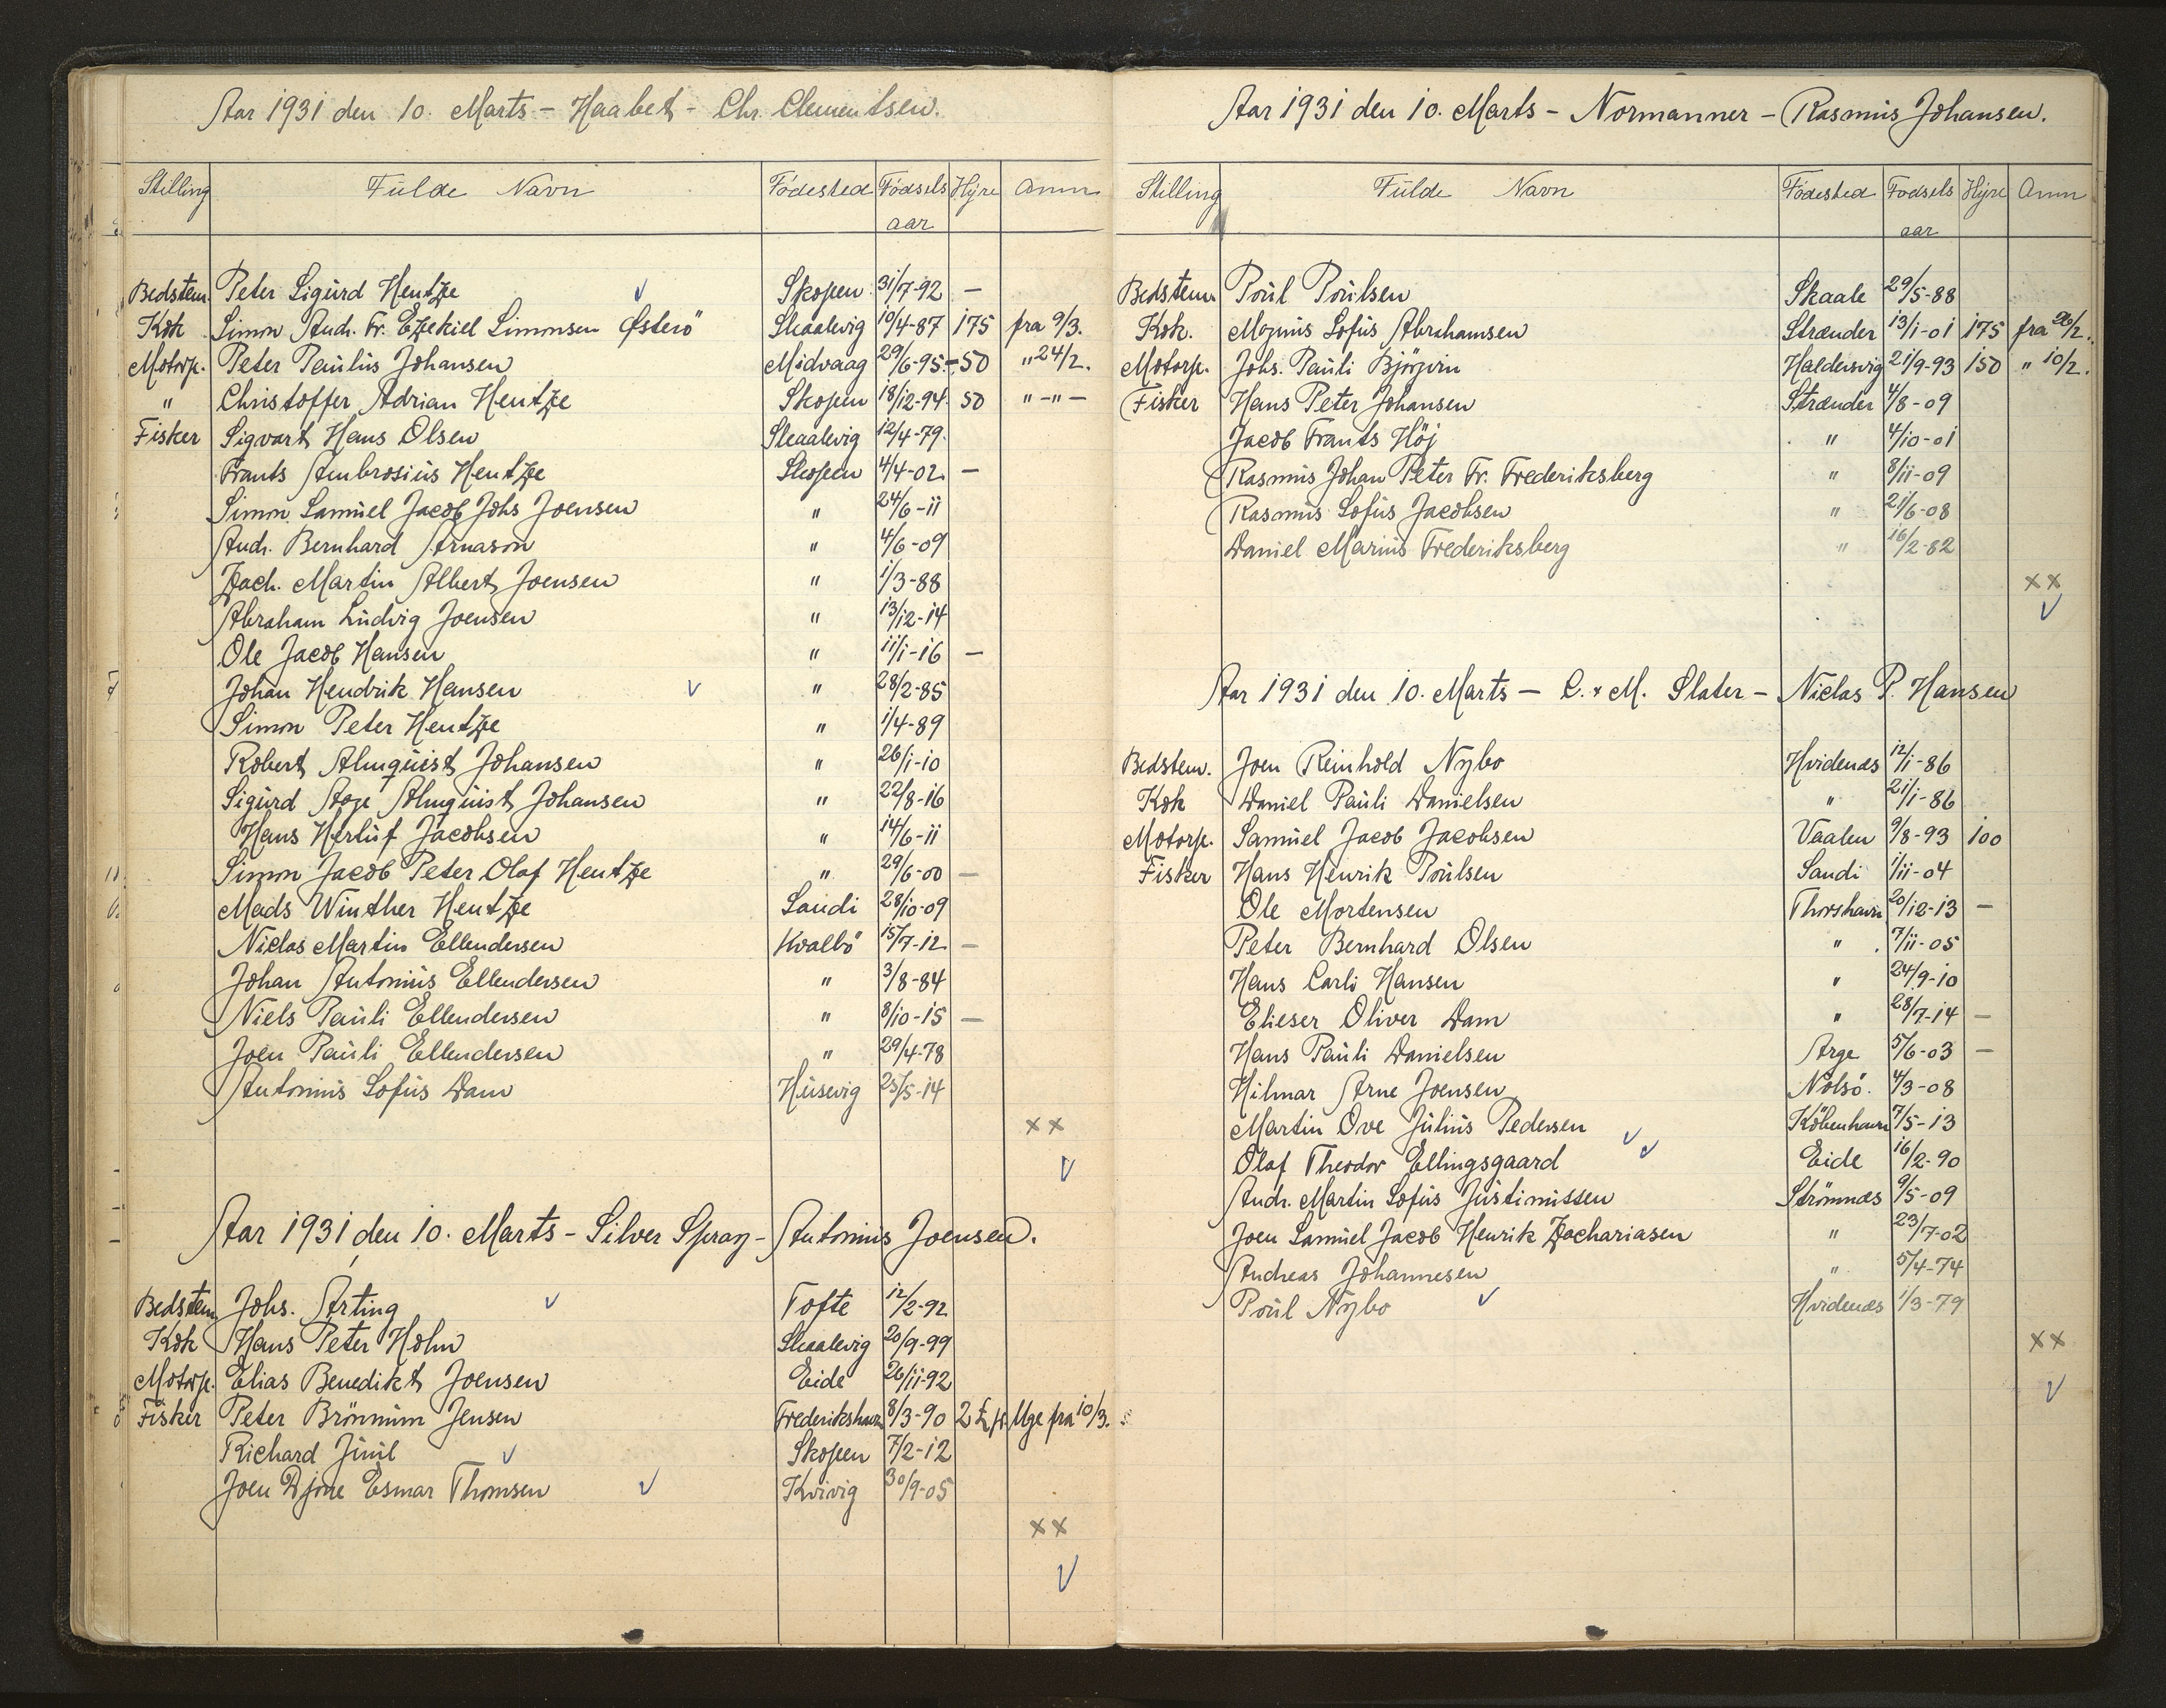 Aar 1931 den 10. Marts - Haabet - Chr. Clementsen.
Stilling Fulde Navn Fødested Fødsels aar Hyre Anm
Bedstem. Peter Sigurd Hentze Skopen 31/7-92 —
Kok Simon Andr. Fr. Ezekiel Simonsen Østerö Skaalevig 10/4-87 175 fra 9/3.
Motorp. Peter Paulus Johansen Midvaag 29/6-95 - 50 " 24/2.
" Christoffer Adrian Hentze Skopen 18/12-94 50 " - " -
Fisker Sigvart Hans Olsen Skaalevig 12/4-79.
Frants Ambrosius Hentze Skopen 4/4-02 —
Simon Samuel Jacob Johs Joensen " 24/6-11
Andr. Bernhard Arnason " 4/6-09
Zach. Martin Albert Joensen " 1/3-88
Abraham Ludvig Joensen " 13/12-14
Ole Jacob Hansen " 11/1-16 —
Johan Hendrik Hansen " 28/2-85
Simon Peter Hentze " 1/4-89
Robert Almquist Johansen " 26/1-10
Sigurd Aage Almquist Johansen " 22/8-16
Hans Herluf Jacobsen " 14/6-11
Simon Jacob Peter Olaf Hentze " 29/6-00 —
Mads Winther Hentze Sandi 28/10-09
Niclas Martin Ellendersen Kvalbö 15/7-12 —
Johan Antonius Ellendersen " 3/8-84
Niels Pauli Ellendersen " 8/10-15 —
Joen Pauli Ellendersen " 29/4-78
Antonius Sofus Dam Husevig 25/5-14
x x
Aar 1931 den 10. Marts - Silver Spray - Antonius Joensen.
Bedstem Johs. Arting Tofte 12/2-92
Kok Hans Peter Holm Skaalevig 20/9-99
Motorp. Elias Benedikt Joensen Eide 26/11-92
Fisker Peter Brönnum Jensen Frederikshavn 8/3-90 2 £ p. Uge fra 10/3.
Richard Juul Skopen 7/2-12
Joen Djone Esmar Thomsen Kvivig 30/9-05
x x
Aar 1931 den 10. Marts - Normanner - Rasmus Johansen.
Stilling Fulde Navn Födested Fødsels aar Hyre Anm
Bedstem. Poul Poulsen Skaale 29/5-88
Kok. Mognus Sofus Abrahamsen Strænder 13/1-01 175 fra 26/2.
Motorp. Johs. Pauli Björgvin Haldersvig 21/9-93 150 " 10/2.
Fisker Hans Peter Johansen Strænder 4/8-09
Jacob Frants Höj " 4/10-01
Rasmus Johan Peter Fr. Frederiksberg " 8/11-09
Rasmus Sofus Jacobsen " 21/6-08
Daniel Marius Frederiksberg " 16/2-82
x x
Aar 1931 den 10. Marts - C. & M. Slater - Niclas P. Hansen
Bedstem. Joen Reinhold Nybo Hvidenæs 12/1-86
Kok Daniel Pauli Danielsen " 21/1-86
Motorp. Samuel Jacob Jacobsen Vaalen 9/8-93 100
Fisker Hans Henrik Poulsen Sandi 1/11-04
Ole Mortensen Thorshavn 20/12-13 —
Peter Bernhard Olsen " 7/11-05
Hans Carli Hansen " 24/9-10
Elieser Oliver Dam " 28/7-14 —
Hans Pauli Danielsen Arge 5/6-03 —
Hilmar Arne Joensen Nolsö. 4/3-08
Martin Ove Julius Pedersen Köbenhavn 7/5-13
Olaf Theodor Ellingsgaard Eide 16/2-90
Andr. Martin Sofus Justinussen Strömnæs 9/5-09
Joen Samuel Jacob Henrik Zachariasen " 23/7-02
Andreas Johannesen " 5/4-74
Poul Nybo Hvidenæs 1/3-79
x x